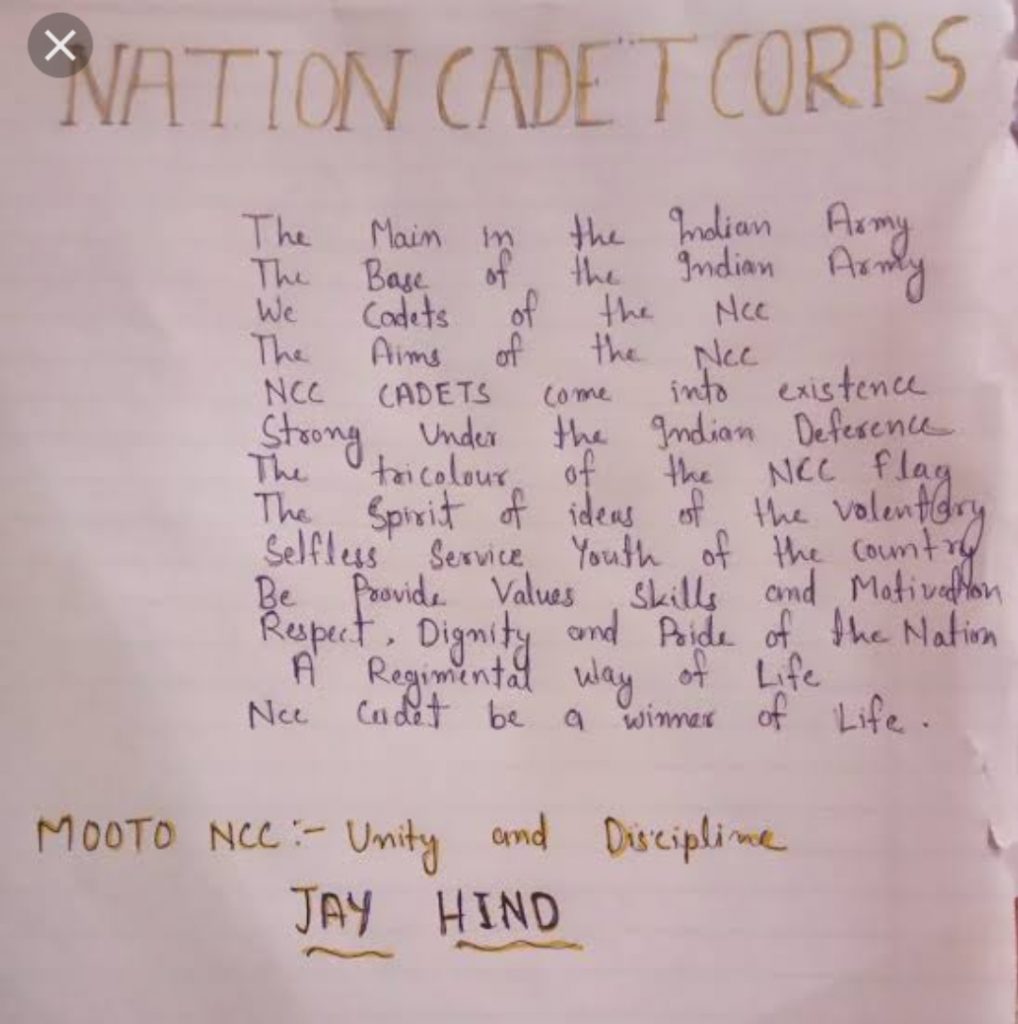 NATION CADET CORPS
The Main in the Indian Army
The Base of the Indian Army
We Cadets of the NCC
The Aims of the NCC
NCC CADETS come into existence
Strong Under the Indian Deference
The tricolour of the NCC flag
The Spirit of ideas of the volentary
Selfless Service Youth of the country
Be Provide Values Skills and Motivation
Respect, Dignity and Pride of the Nation
A Regimental way of Life
Ncc Cadet be a winner of Life.
MOOTO NCC :- Unity and Discipline
JAY HIND